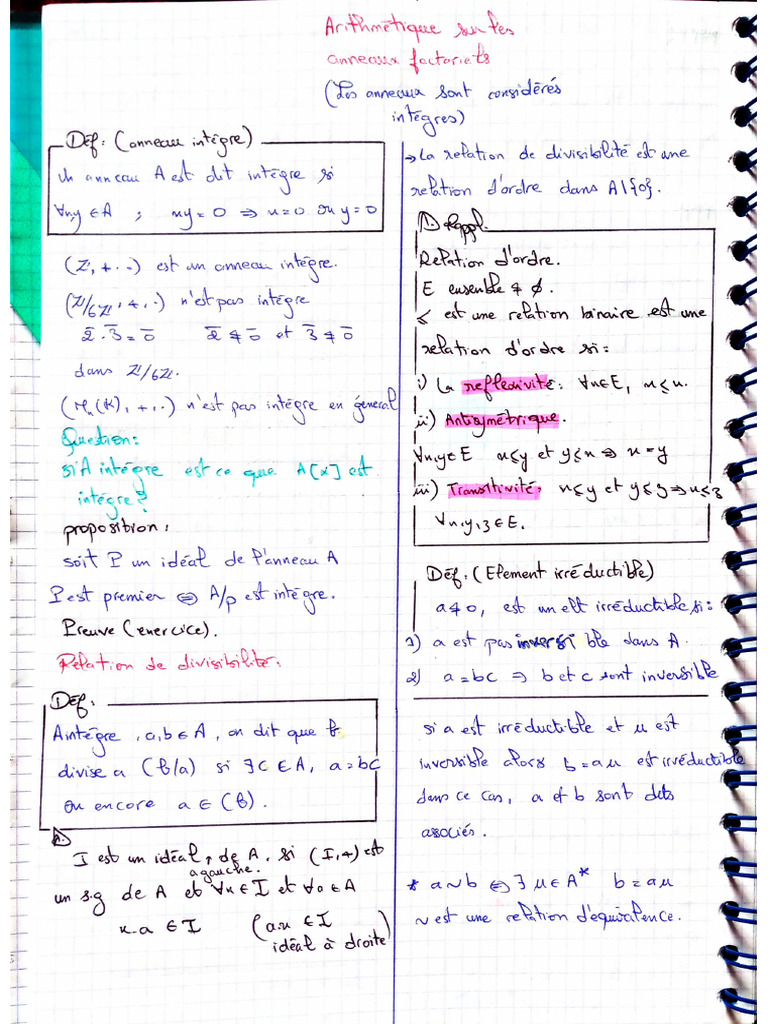 Arithmétique sur les
anneaux factoriels
(Les anneaux sont considérés
intègres)
Déf: (anneau intègre)
Un anneau A est dit intègre si
∀x,y ∈ A ; xy = 0 ⇒ x = 0 ou y = 0
(ℤ, +, .) est un anneau intègre.
(ℤ/6ℤ, +, .) n'est pas intègre
2̄ . 3̄ = 0̄   2̄ ≠ 0̄ et 3̄ ≠ 0̄
dans ℤ/6ℤ.
(Mn(K), +, .) n'est pas intègre en général
Question:
si A intègre est ce que A[x] est
intègre?
proposition:
soit P un idéal de l'anneau A
P est premier ⇔ A/p est intègre.
Preuve (exercice).
Relation de divisibilité:
Déf:
A intègre, a,b ∈ A, on dit que b
divise a (b/a) si ∃c ∈ A, a = bc
ou encore a ∈ (b).
R.
I est un idéal, de A, si (I,+) est
à gauche.
un s.g de A et ∀x ∈ I et ∀a ∈ A
x.a ∈ I (a.x ∈ I
idéal à droite)
→ La relation de divisibilité est une
relation d'ordre dans A\{0}.
Rappel.
Relation d'ordre.
E ensemble ≠ ∅.
≤ est une relation binaire est une
relation d'ordre si:
i) La reflexivité: ∀x∈E, x≤x.
ii) Antisymétrique.
∀x,y∈E x≤y et y≤x ⇒ x = y
iii) Transitivité, x≤y et y≤z ⇒ x≤z
∀x,y,z ∈ E.
Déf: (Element irréductible)
a≠0, est un elt irréductible si:
1) a est pas inversible dans A.
2) a = bc ⇒ b et c sont inversible
si a est irréductible et u est
inversible alors b = au est irréductible
dans ce cas, a et b sont dits
associés.
* a ~ b ⇔ ∃ u ∈ A* b = au
~ est une relation d'équivalence.